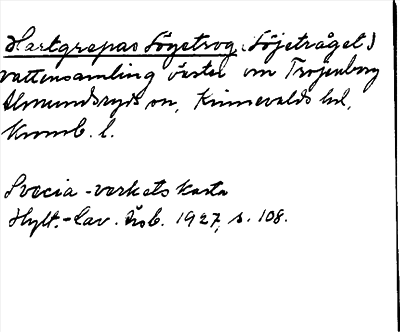 Hartgrepas Söjetrog (Söjetråget)
vattensamling öster om Trojenborg
Almundsryds sn, Kinnevalds hd,
Kronob. l.
Svecia-verkets karta
Hylt.-Cav. Årsb. 1927, s. 108.